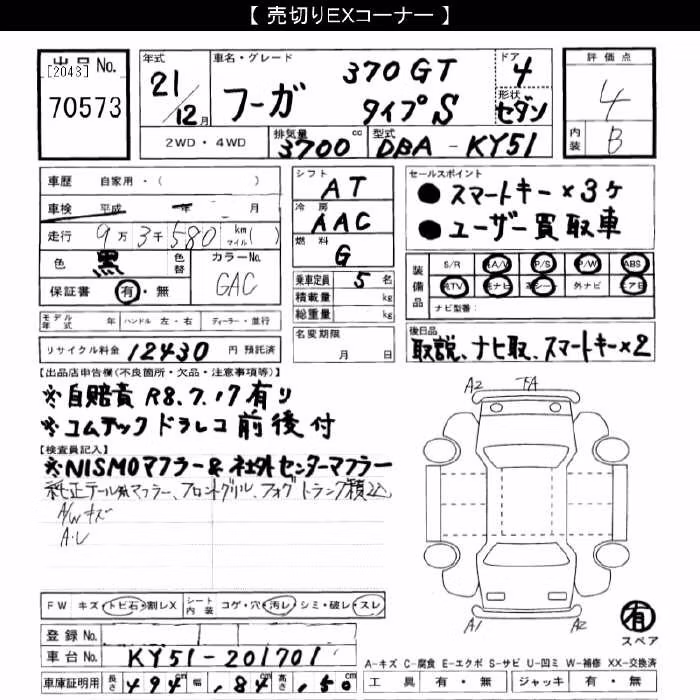 【 売切りEXコーナー 】
出品No.
[2043]
70573
年式
21/12月
車名・グレード
フーガ
370GT
タイプS
ドア
4
形状
セダン
評価点
4
内装
B
2WD・4WD
排気量
3700cc
型式
DBA-KY51
車歴 自家用・( )
車検 平成 年 月
走行 9万3千580 km マイル( )
色 黒 色替
カラーNo.
GAC
保証書 有・無
シフト
AT
冷房
AAC
燃料
G
乗車定員 5名
積載量 kg
総重量 kg
名変期限
月 日
セールスポイント
●スマートキー×3ケ
●ユーザー買取車
装備品
S/R A/W P/S P/W ABS
純TV 純ナビ 革シート 外ナビ エアB
ナビ型番:
モデル年式 年 ハンドル 左・右 ディーラー・並行
リサイクル料金 12430 円 預託済
後日品
取説、ナビ取、スマートキー×2
【出品店申告欄(不良箇所・欠品・注意事項等)】
※自賠責 R8.7.17有り
※コムテック ドラレコ前後付
【検査員記入】
※NISMOマフラー&社外センターマフラー
純正テール、マフラー、フロントグリル、フォグ トランク積込
A/Wキズ
A・U
A2 FA
A1 A2
有
スペア
FW キズ・トビ石・割レX シート内装 コゲ・穴・汚レ・シミ・破レ・スレ
登録No.
車台No. KY51-201701
車庫証明用 長さ 494cm 幅 184cm 高さ 150cm
A-キズ C-腐食 E-エクボ S-サビ U-凹ミ W-補修 XX-交換済
工具 有・無 ジャッキ 有・無